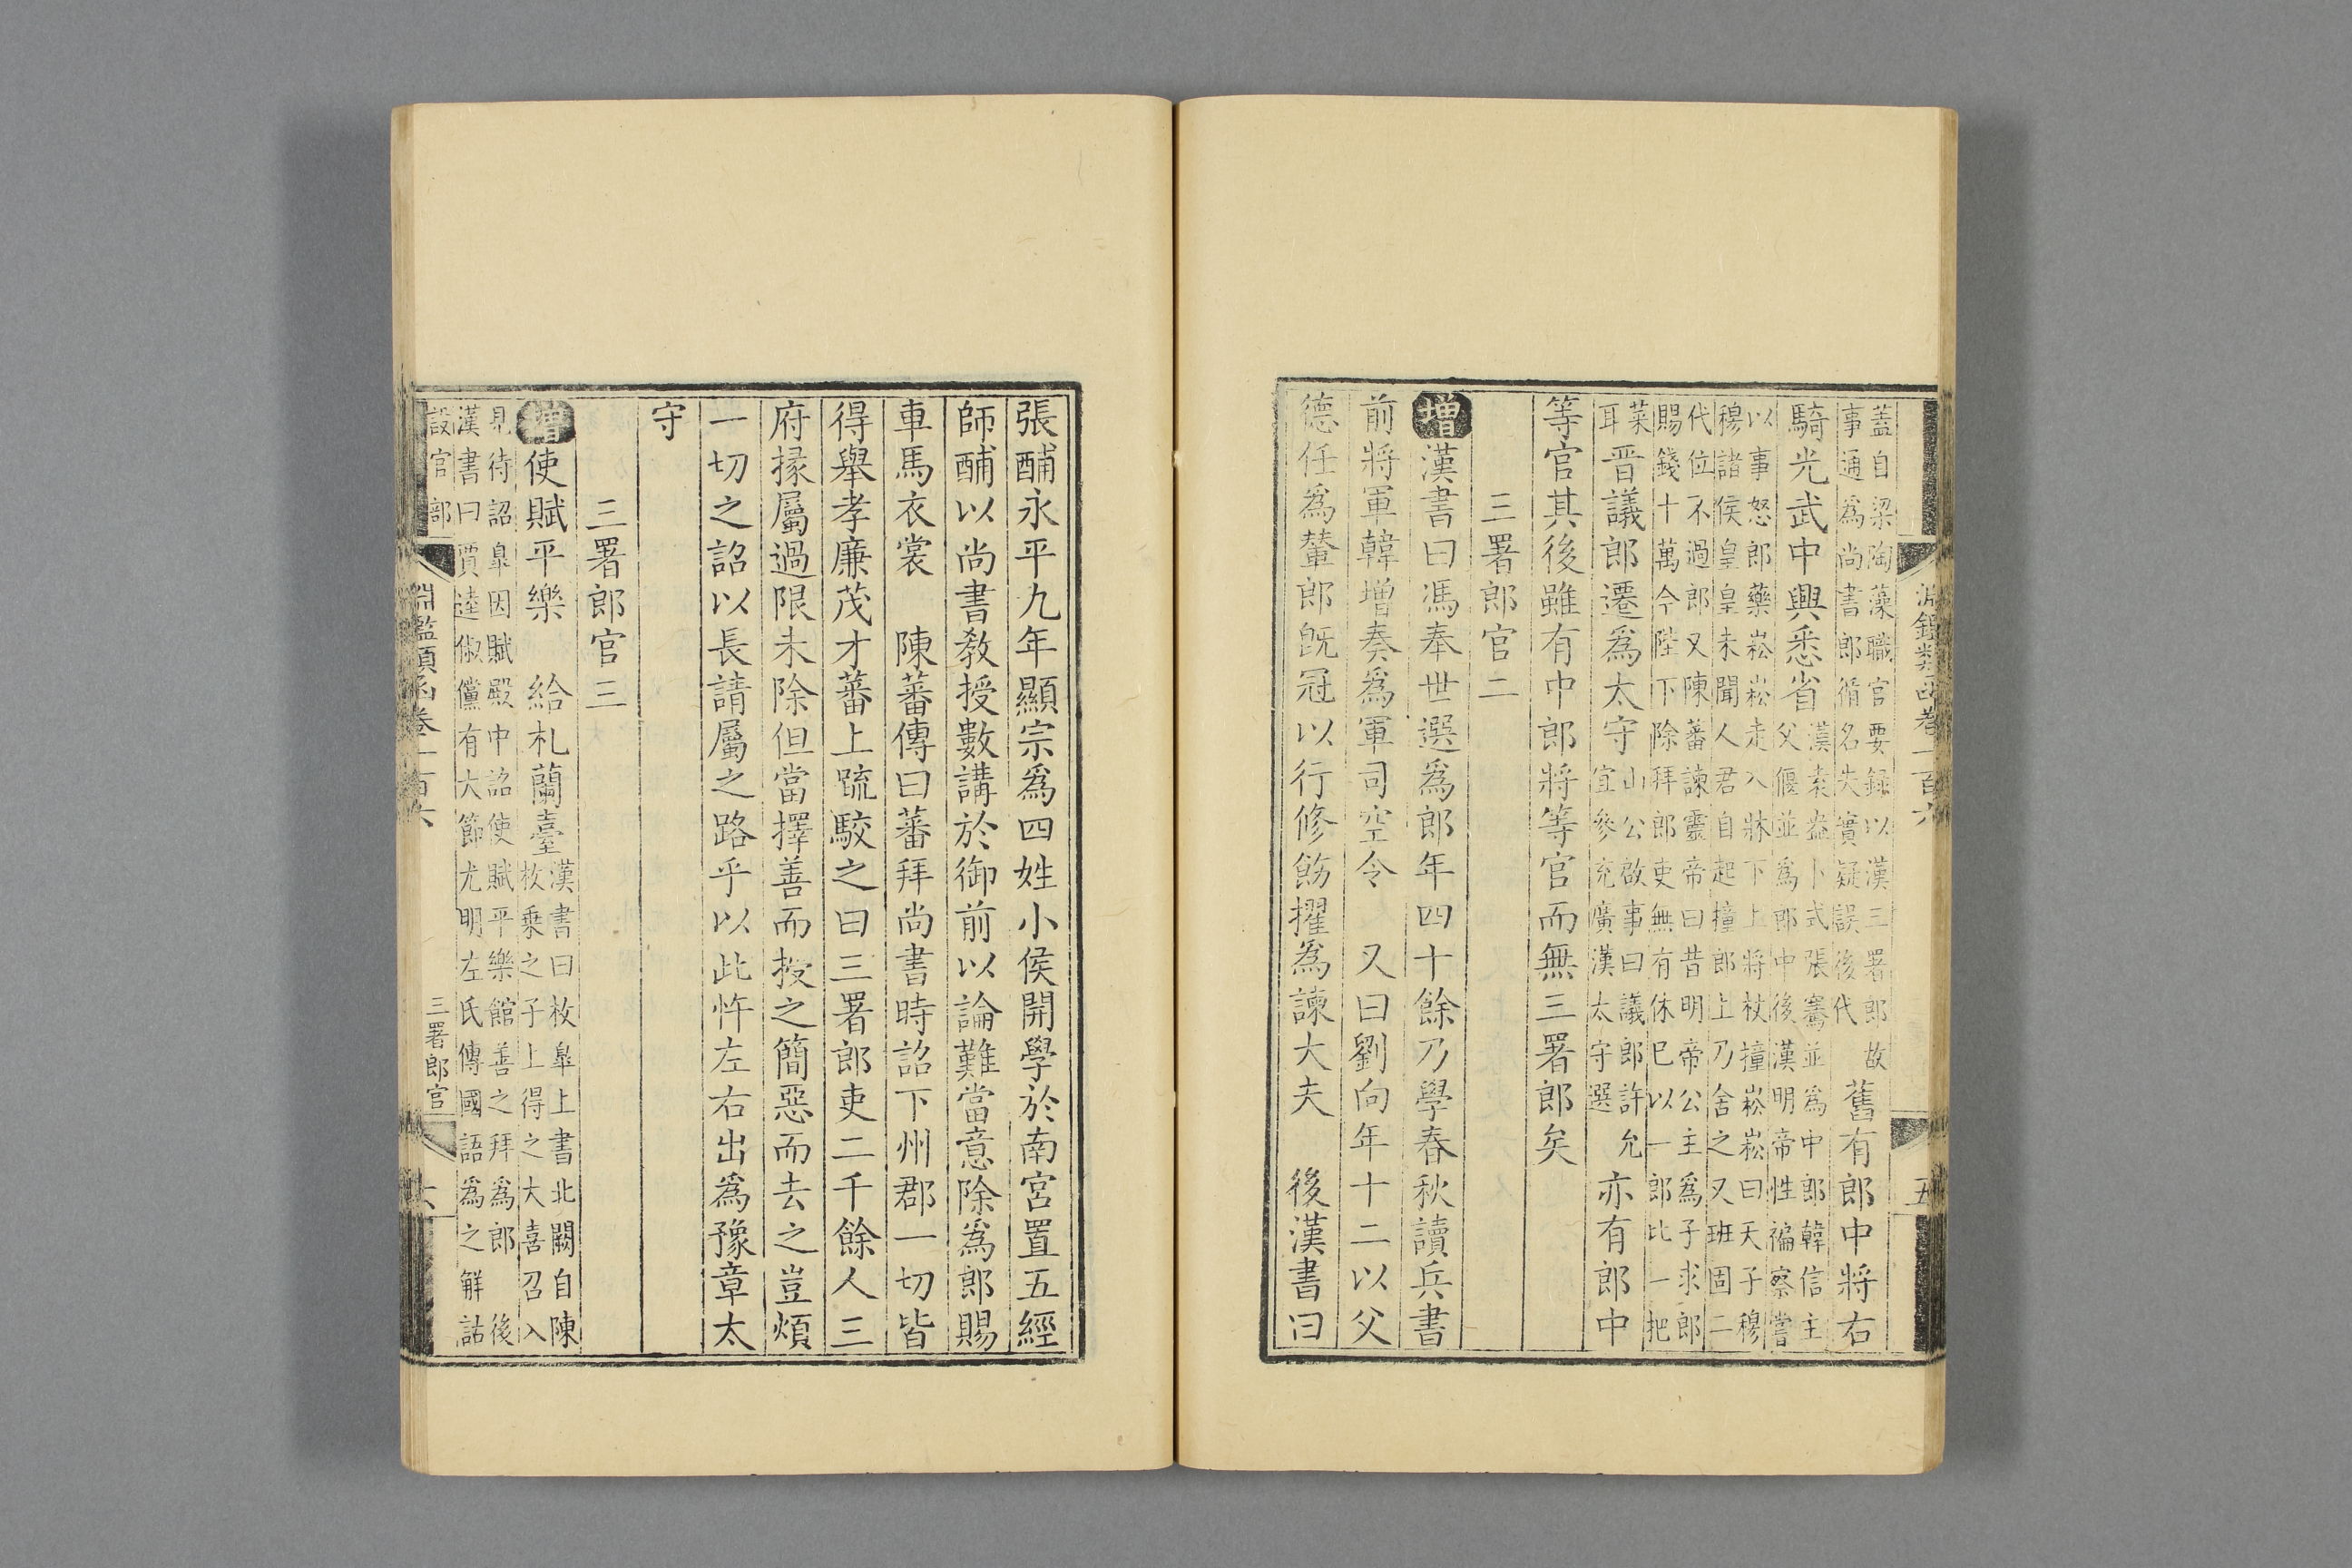 蓋自梁陶藻職官要録以漢三署郎故
事通為尚書郎脩名失實疑誤後代
舊有郎中將右
騎光武中興悉省
漢袁盎卜式張騫並為中郎韓信主
父偃並為郎中後漢明帝性褊察嘗
以事怒郎藥崧崧走入牀下上將杖撞崧崧曰天子穆
穆諸侯皇皇未聞人君自起撞郎上乃舍之又班固二
代位不過郎又陳蕃諫靈帝曰昔明帝公主為子求郎
賜錢十萬今陛下除拜郎吏無有休巳以一郎比一把
菜
耳
晋議郎遷爲太守
山公啟事曰議郎許允
宜參充廣漢太守選
亦有郎中
等官其後雖有中郎將等官而無三署郎矣
三署郎官二
增漢書曰馮奉世選爲郎年四十餘乃學春秋讀兵書
前將軍韓增奏爲軍司空令 又曰劉向年十二以父
德任爲輦郎旣冠以行修飭擢爲諫大夫 後漢書曰
淵鑑類函卷一百六
五
張酺永平九年顯宗爲四姓小侯開學於南宮置五經
師酺以尚書敎授數講於御前以論難當意除爲郎賜
車馬衣裳 陳蕃傳曰蕃拜尚書時詔下州郡一切皆
得舉孝廉茂才蕃上疏駮之曰三署郎吏二千餘人三
府掾屬過限未除但當擇善而授之簡惡而去之豈煩
一切之詔以長請屬之路乎以此忤左右出爲豫章太
守
三署郎官三
增使賦平樂 給札蘭臺
漢書曰枚皐上書北闕自陳
枚乗之子上得之大喜召入
見待詔皐因賦殿中詔使賦平樂館善之拜為郎 後
漢書曰賈逵俶儻有大節尤明左氏傳國語為之解詁
設官部
淵鑑類函卷一百六
三署郎官
六